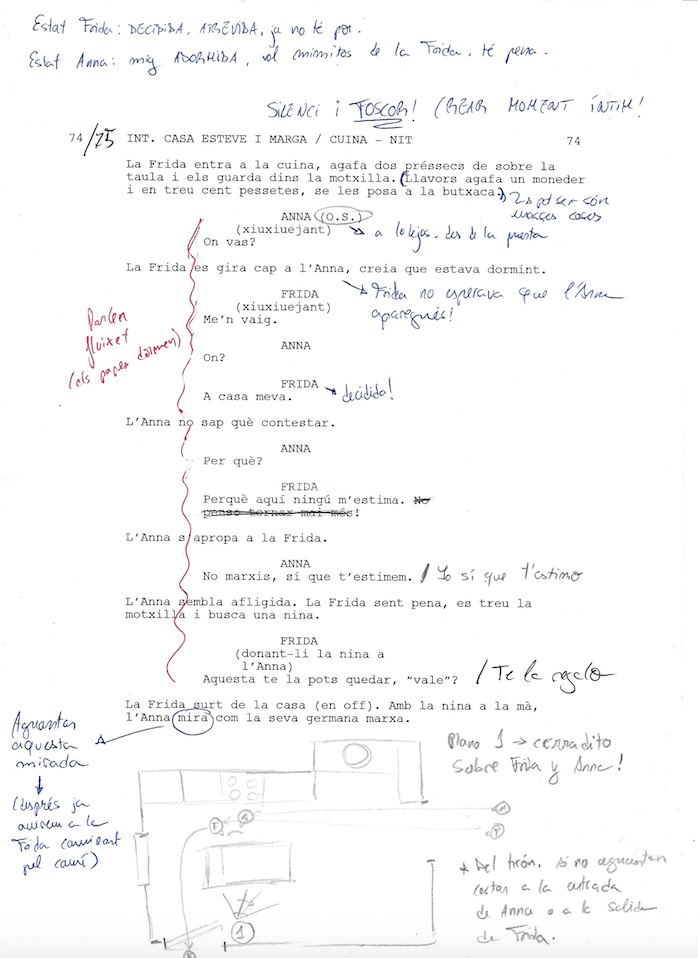 Estat Frida: DECIDIDA, ATREVIDA, ja no té por.
Estat Anna: mig ADORMIDA, vol mimitos de la Frida, té pena.
SILENCI i FOSCOR! (CREAR MOMENT ÍNTIM!
74 /75 INT. CASA ESTEVE I MARGA / CUINA – NIT 74
La Frida entra a la cuina, agafa dos préssecs de sobre la
taula i els guarda dins la motxilla. (Llavors agafa un moneder
i en treu cent pessetes, se les posa a la butxaca.)
potser són
masses coses
ANNA (O.S.)
(xiuxiuejant)
a lo lejos. des de la puerta
On vas?
La Frida es gira cap a l'Anna, creia que estava dormint.
FRIDA
(xiuxiuejant)
Me'n vaig.
* Frida no esperava que l'Anna
aparegués!
Parlen
fluixet
(els papes dormen)
ANNA
On?
FRIDA
A casa meva.
decidida!
L'Anna no sap què contestar.
ANNA
Per què?
FRIDA
Perquè aquí ningú m'estima. No
penso tornar mai més!
L'Anna s'apropa a la Frida.
ANNA
No marxis, sí que t'estimem. / Jo sí que t'estimo
L'Anna sembla afligida. La Frida sent pena, es treu la
motxilla i busca una nina.
FRIDA
(donant-li la nina a
l'Anna)
Aquesta te la pots quedar, "vale"? / Te la regalo
La Frida surt de la casa (en off). Amb la nina a la mà,
l'Anna mira com la seva germana marxa.
Aguantar
aquesta
mirada
(després ja
anirem a la
Frida caminant
pel camí)
Plano 1 → cerradito
sobre Frida y Anna!
A
F
F
A
1
* Del tirón, si no aguantan
cortar a la entrada
de Anna o a la salida
de Frida.